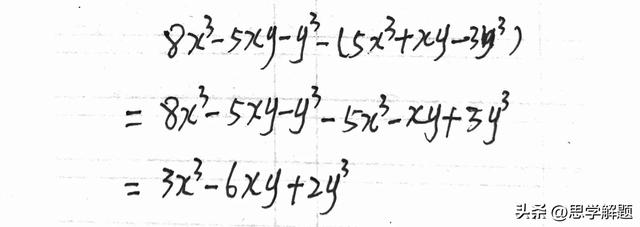 8x³-5xy-y³-(5x³+xy-3y³)
= 8x³-5xy-y³-5x³-xy+3y³
= 3x³-6xy+2y³
头条 @思学解题